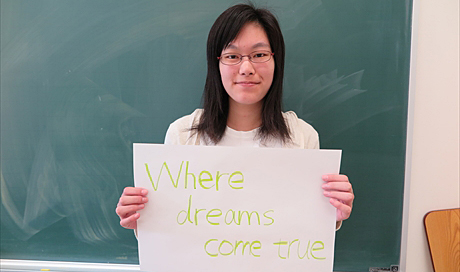 Where
dreams
come true